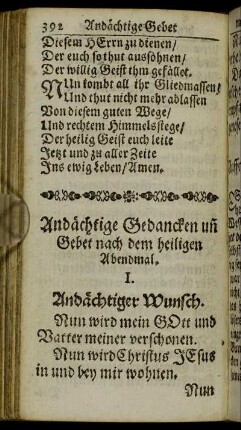 392 Andächtige Gebet
Diesem HErrn zu dienen/
Der euch so thut aussöhnen/
Der willig Geist ihm gefället.
NUn kombt all ihr Gliedmassen/
Und thut nicht mehr ablassen
Von diesem guten Wege/
Und rechtem Himmelsstege/
Der heilig Geist euch leite
Jetzt und zu aller Zeite
Ins ewig Leben/ Amen.
Andächtige Gedancken uñ
Gebet nach dem heiligen
Abendmal.
I.
Andächtiger Wunsch.
Nun wird mein GOtt und
Vatter meiner verschonen.
Nun wird Christus JEsus
in und bey mir wohnen.
Nun